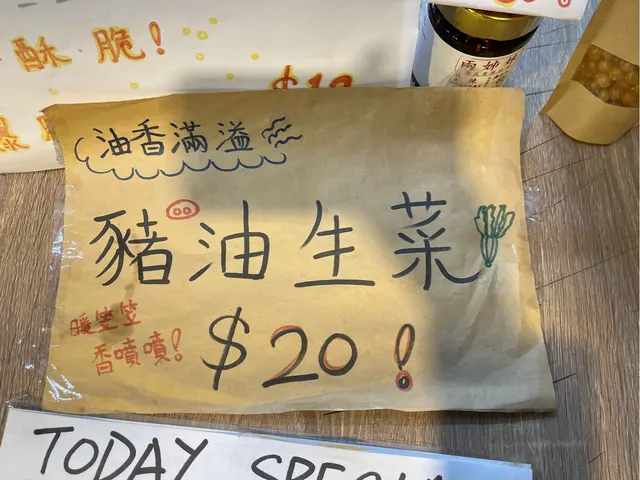 酥脆!
$12
油香滿溢
豬油生菜
暖笠笠
香噴噴!
$20!
TODAY SPECIAL